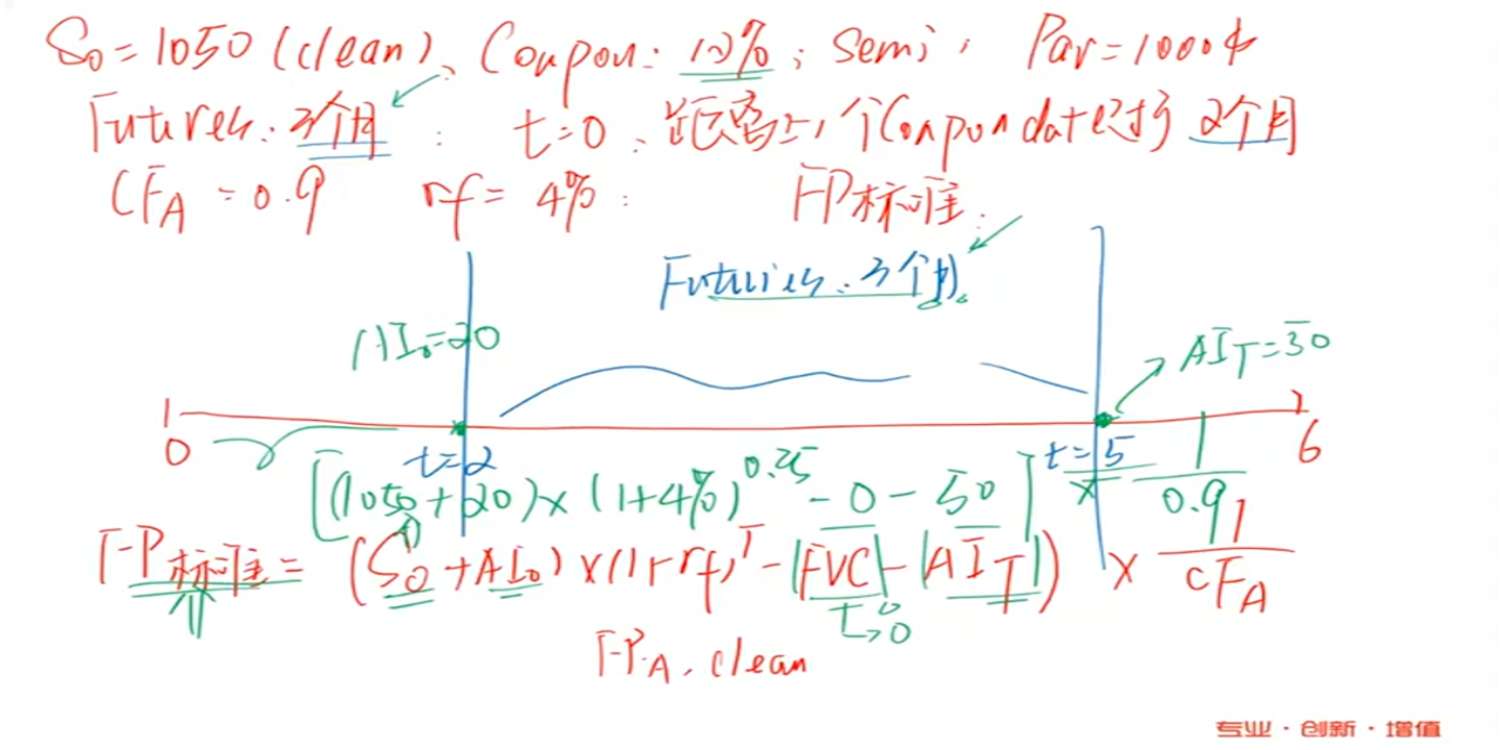 S₀=1050 (clean)、Coupon: 10%; Semi, Par=1000$
Futures: 3个月: t=0、距离上1个Coupon date已过了2个月
CFA=0.9 rf=4%: FP标准.
Futures: 3个月.
AI₀=20
AI_T=50
0
t=2
t=5
6
[(1050+20)×(1+4%)^0.25 - 0 - 50] × 1/0.9
FP标准 = (S₀+AI₀)×(1+rf)^T - |FVC| - |AI_T|) × 1/CFA
0
↳0
FP_A, clean
专业·创新·增值